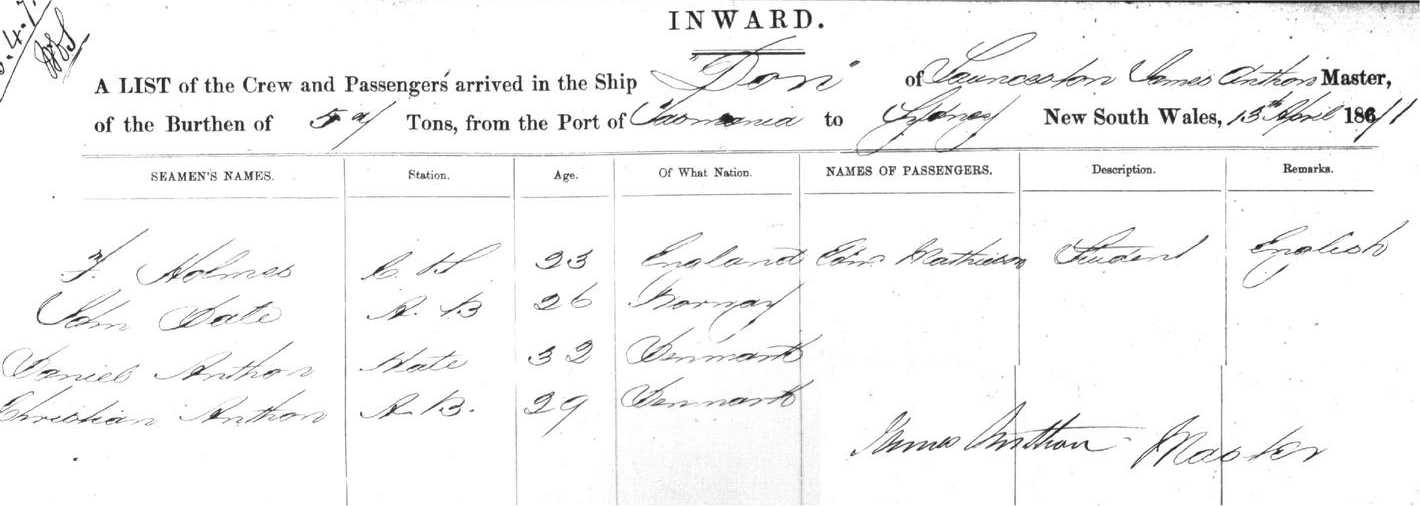 INWARD.
A LIST of the Crew and Passengers arrived in the Ship "Don" of Launceston James Anthon Master,
of the Burthen of Tons, from the Port of Tasmania to Sydney New South Wales, 13th April 1861/1
SEAMEN'S NAMES. Station. Age. Of What Nation. NAMES OF PASSENGERS. Description. Remarks.
F. Holmes 23 England Edw. Mathieson Student English
John Date A. B 26 Norway
Daniel Anthon Mate 32 Denmark
Christian Anthon A. B. 29 Denmark
James Anthon Master